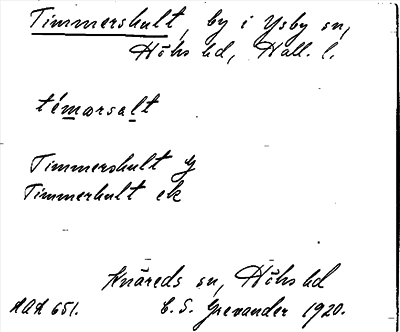 Timmershult, by i Ysby sn,
Höks hd, Hall. l.
témarsalt
Timmershult G
Timmerhult ek
Knäreds sn, Höks hd
AAA 651. C. S. Grevander 1920.